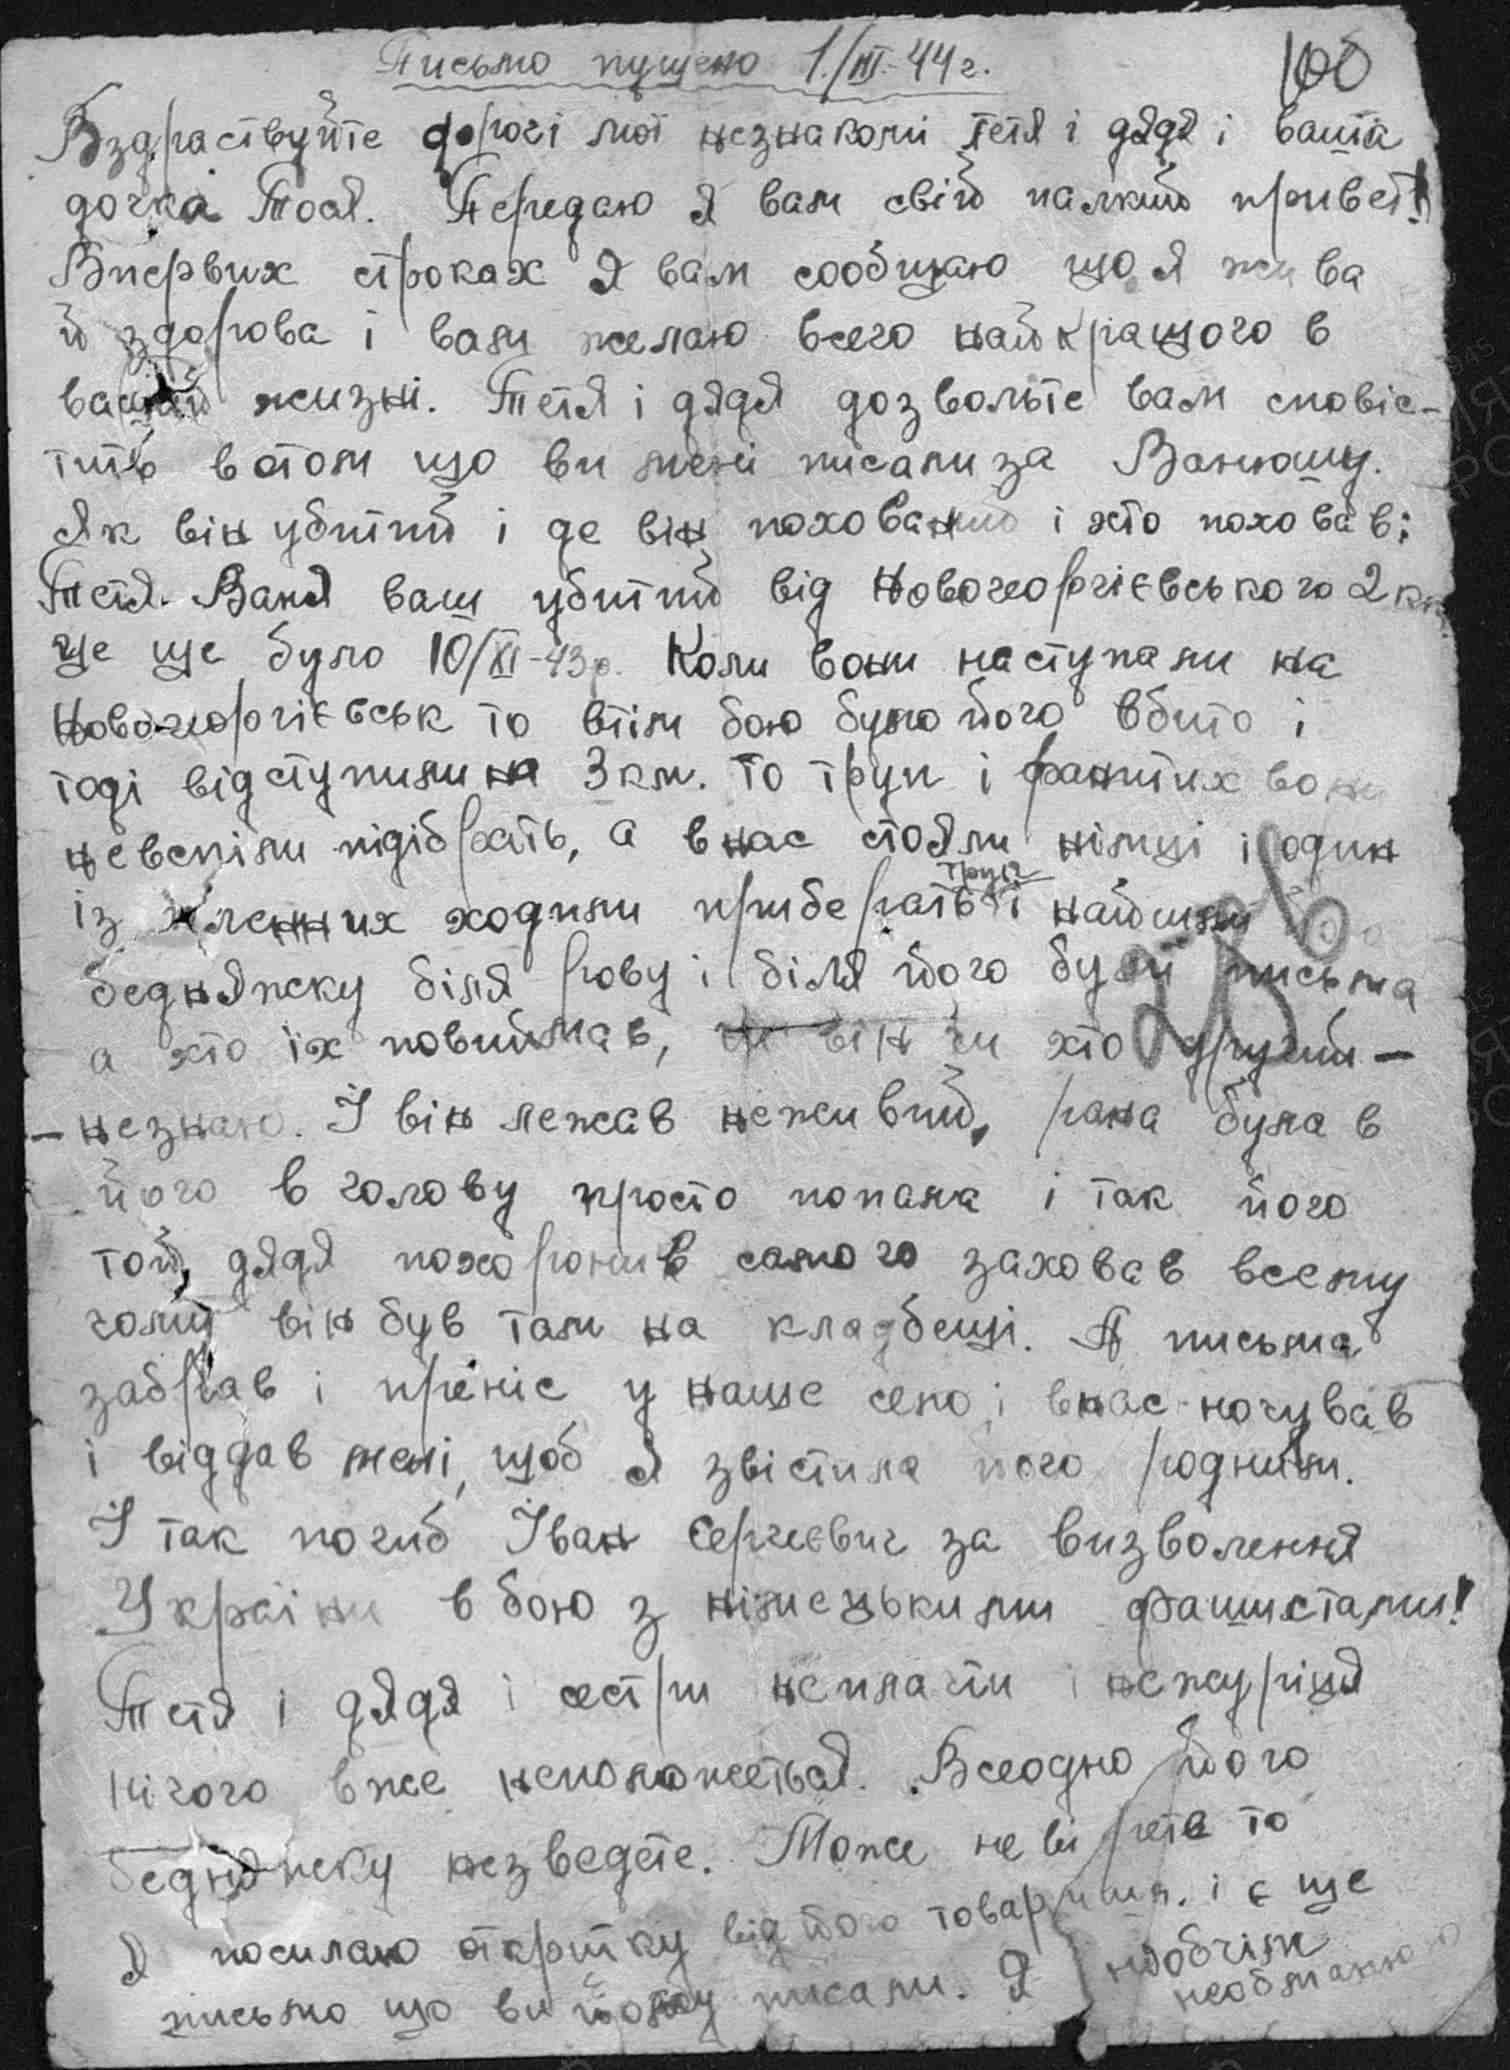 Письмо пущено 1/III-44 г.
Вздраствуйте дорогі мої незнакомі тетя і дядя і вашка
дочка Тося. Передаю я вам свій палкий привет!
Впервих строках я вам сообщаю що я жива
й здорова і вам желаю всего найкращого в
вашій жизні. Тетя і дядя дозвольте вам сповіс-
тить вотом що ви мені писали за Ванюшу.
Як він убитий і де він похований і хто поховав:
Тетя. Ваня ваш убитий від Новогеоргієвського 2 км
Це ще було 10/XI-43р. Коли вони наступали на
Новогеоргієвськ то втім бою було його вбито і
тоді відступили на 3 км. то труп і ранитих вони
невспіли підібрать, а внас стояли німці і один
із пленних ходили приберать трупи і найшли його
бедняжку біля рову і біля його були письма
а хто їх повиймав, чи він чи хто другий –
– незнаю. І він лежав неживий, рана була в
його в голову просто попала і так його
той дядя похоронив самого заховав всему
чому він був там на кладбещі. А письма
забрав і приніс у наше село і внас ночував
і віддав мені, щоб я звістила його родним.
І так погиб Іван Сергеєвич за визволення
України в бою з німецькими фашистами!
Тетя і дядя і сестри неплачти і нежуріця
нічого вже непоможеться. Всеодно його
бедняжку незведете. Може не вірете то
я посилаю откритку від його товариша. і є ще
письмо що ви йому писали. Я
необманюю